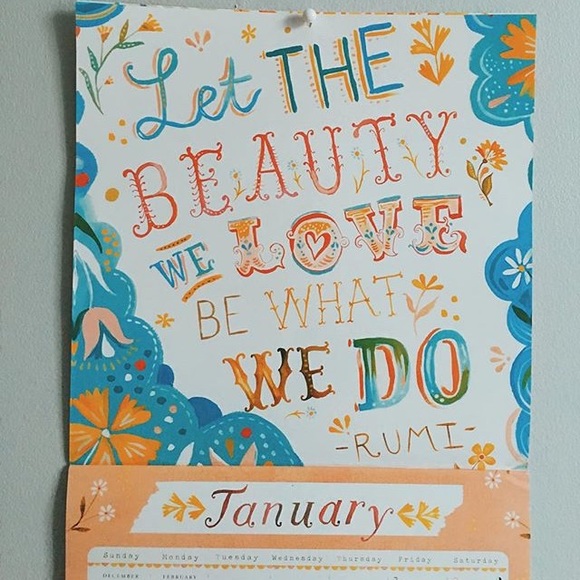 Let THE
BEAUTY
WE LOVE
BE WHAT
WE DO
-RUMI-
January
Sunday Monday Tuesday Wednesday Thursday Friday Saturday
DECEMBER FEBRUARY